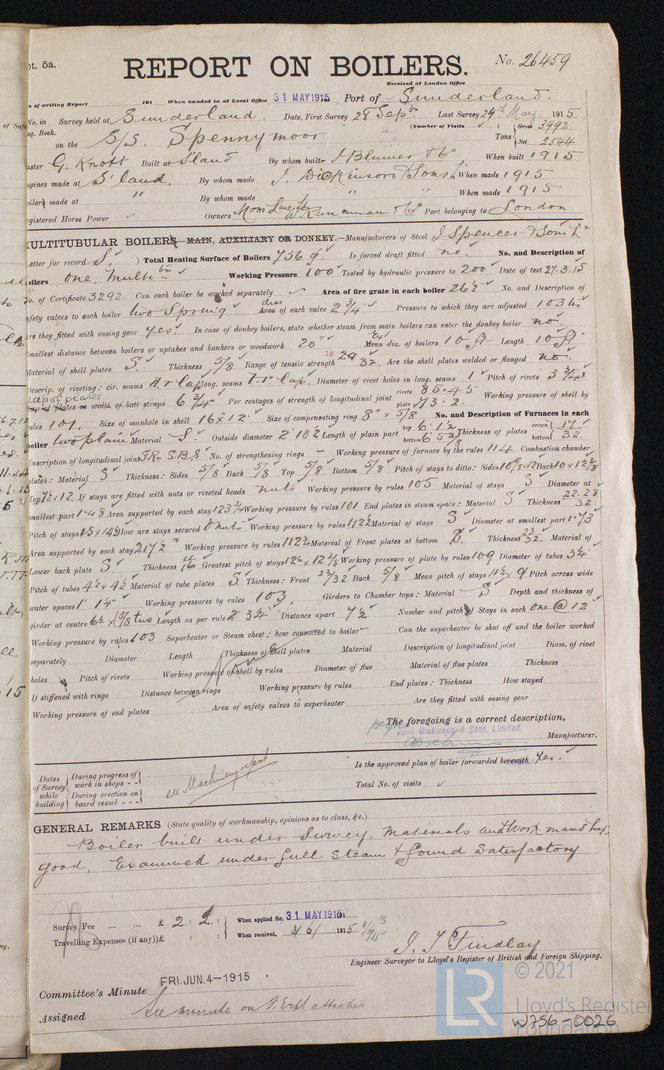 pt. 5a.
REPORT ON BOILERS.
No. 26459
Received at London Office
of writing Report 191 When handed in at Local Office 31 MAY 1915 Port of Sunderland.
No. in Survey held at Sunderland. Date, First Survey 28 Sept Last Survey 24th May 1915
Reg. Book. (Number of Visits )
on the S/S. Spennymoor Tons { Gross 3992 Net 2544
Master G. Knott Built at S'land By whom built J. Blumer & Co When built 1915
Engines made at S'land. By whom made J. Dickinson & Sons Ld When made 1915
Boilers made at " By whom made " " When made 1915
Registered Horse Power Owners Moor Line Ld W. Runciman & Co Port belonging to London
MULTITUBULAR BOILERS MAIN, AUXILIARY OR DONKEY.—Manufacturers of Steel J Spencer & Sons Ld
Letter for record S. ) Total Heating Surface of Boilers 756 Is forced draft fitted no. No. and Description of
Boilers one multi Working Pressure 100 Tested by hydraulic pressure to 200 Date of test 27.3.15
No. of Certificate 3292. Can each boiler be worked separately Area of fire grate in each boiler 26½ No. and Description of
safety valves to each boiler two Spring Area of each valve dia 2¾ Pressure to which they are adjusted 103 lbs
Are they fitted with easing gear yes In case of donkey boilers, state whether steam from main boilers can enter the donkey boiler no.
Smallest distance between boilers or uptakes and bunkers or woodwork 20" Mean dia. of boilers 10 ft Length 10 ft.
Material of shell plates S. Thickness 5/8 Range of tensile strength 28 32 Are the shell plates welded or flanged no.
Descrip. of riveting: cir. seams d r Lap long. seams t.r. Lap. Diameter of rivet holes in long. seams 1" Pitch of rivets 3
Lap of plates or width of butt straps 6¾ Per centages of strength of longitudinal joint rivets 85.45 plate 73.2 Working pressure of shell by
rules 101. Size of manhole in shell 16 x 12 Size of compensating ring 8" x 5/8 No. and Description of Furnaces in each
boiler two plain Material S Outside diameter 2' 10½ Length of plain part top 6.1½ bottom 6.5 Thickness of plates crown 17 bottom 32
Description of longitudinal joint No. of strengthening rings - Working pressure of furnace by the rules 114 Combustion chamber
plates: Material S Thickness: Sides 5/8 Back 5/8 Top 5/8 Bottom 5/8 Pitch of stays to ditto: Sides Back
Top If stays are fitted with nuts or riveted heads nuts Working pressure by rules 105 Material of stays S Diameter at
smallest part 1.48 Area supported by each stay 123 Working pressure by rules 101 End plates in steam space: Material S Thickness 22.23 32
Pitch of stays How are stays secured d nuts Working pressure by rules 112 Material of stays S Diameter at smallest part 1.73
Area supported by each stay 217½ Working pressure by rules 112 Material of Front plates at bottom S. Thickness Material of
Lower back plate S Thickness Greatest pitch of stays Working pressure of plate by rules 109 Diameter of tubes 3¼
Pitch of tubes 4½ x 4½ Material of tube plates S Thickness: Front Back 5/8 Mean pitch of stays Pitch across wide
water spaces 1' 14" Working pressures by rules 103 Girders to Chamber tops: Material S Depth and thickness of
girder at centre 6½ x 5/8 two Length as per rule 2' 3¾ Distance apart 7½ Number and pitch of Stays in each one @ 12"
Working pressure by rules 103 Superheater or Steam chest: how connected to boiler Can the superheater be shut off and the boiler worked
separately Diameter Length Thickness of shell plates Material Description of longitudinal joint Diam. of rivet
None
holes Pitch of rivets Working pressure of shell by rules Diameter of flue Material of flue plates Thickness
If stiffened with rings Distance between rings Working pressure by rules End plates: Thickness How stayed
Working pressure of end plates Area of safety valves to superheater Are they fitted with easing gear
The foregoing is a correct description,
John Dickinson & Sons, Limited
Manufacturer.
Dates of Survey while building { During progress of work in shops - - During erection on board vessel - - -
see Machinery report
Is the approved plan of boiler forwarded herewith Yes.
Total No. of visits
GENERAL REMARKS (State quality of workmanship, opinions as to class, &c.)
Boiler built under Survey, materials and workmanship
good. Examined under full steam & found satisfactory
Survey Fee ... ... £ 2 : 2 : When applied for, 31 MAY 1915
Travelling Expenses (if any) £ : : When received, 4/6/ 1915
J. T. Findlay
Engineer Surveyor to Lloyd's Register of British and Foreign Shipping.
Committee's Minute FRI. JUN. 4-1915
Assigned See minute on F.E. Rpt attached
LR © 2021
Lloyd's Register
Foundation
W756-0026